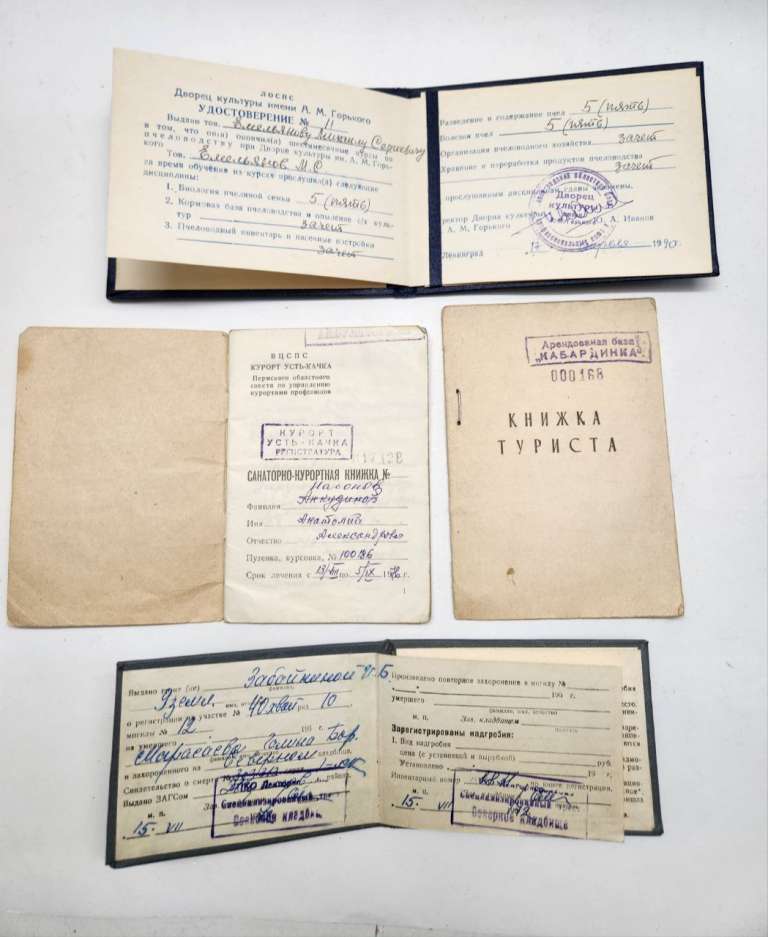 ЛОСПС
Дворец культуры имени А. М. Горького
УДОСТОВЕРЕНИЕ № 11
Выдано тов. Емельянову Михаилу Сергеевичу
в том, что он(а) окончил(а) шестимесячные курсы по
пчеловодству при Дворце культуры им. А. М. Горь-
кого
Тов. Емельянов М. С.
за время обучения на курсах прослушал(а) следующие
дисциплины:
1. Биология пчелиной семьи 5 (пять)
2. Кормовая база пчеловодства и опыление с/х куль-
тур зачет
3. Пчеловодный инвентарь и пасечные постройки
зачет
Разведение и содержание пчел 5 (пять)
Болезни пчел 5 (пять)
Организация пчеловодного хозяйства зачет
Хранение и переработка продуктов пчеловодства
зачет
прослушанным дисциплинам сданы
Дворец
культуры
ректор Дворца культуры
А. М. Горького Ю. А. Иванов
Ленинград 17 апреля 1990 г.
ВЦСПС
КУРОРТ УСТЬ-КАЧКА
Пермского областного
совета по управлению
курортами профсоюзов
КУРОРТ
УСТЬ-КАЧКА
РЕГИСТРАТУРА
САНАТОРНО-КУРОРТНАЯ КНИЖКА №
Насонов
Фамилия Аккудинов
Имя Анатолий
Отчество Александрович
Путевка, курсовка, № 100136
Срок лечения с 13/VIII по 5/IX 19 г.
1
Арендованная база
„КАБАРДИНКА“
000168
КНИЖКА
ТУРИСТА
Выдано Забайкиной
фамилия,
Уземл.
о регистрации на участке № 40 хвай раз. 10
могилы № 12 195 г.
на умершего
Галина Бор.
и захороненного на Северном кладбище.
Свидетельство о смерти
Выдано ЗАГСом
м. п.
15 VII
Специализированный трест
кладбище
Произведено повторное захоронение в могилу №
195 г.
умершего
фамилия, имя, отчество
м. п. Зав. кладбищем
подпись
Зарегистрированы надгробия:
1. Вид надгробия
цена (с установкой и вырубкой) руб.
Установлено 19 г.
Инвентарный номер по книге регистрации.
м. п.
15 VII
Специализированный
кладбище